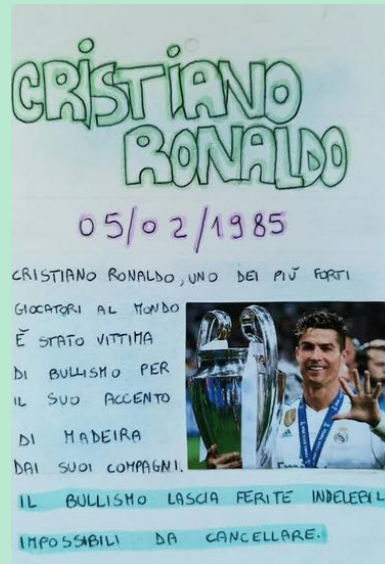 CRISTIANO
RONALDO
05/02/1985
CRISTIANO RONALDO, UNO DEI PIÙ FORTI
GIOCATORI AL MONDO
È STATO VITTIMA
DI BULLISMO PER
IL SUO ACCENTO
DI MADEIRA
DAI SUOI COMPAGNI.
IL BULLISMO LASCIA FERITE INDELEBIL
IMPOSSIBILI DA CANCELLARE.